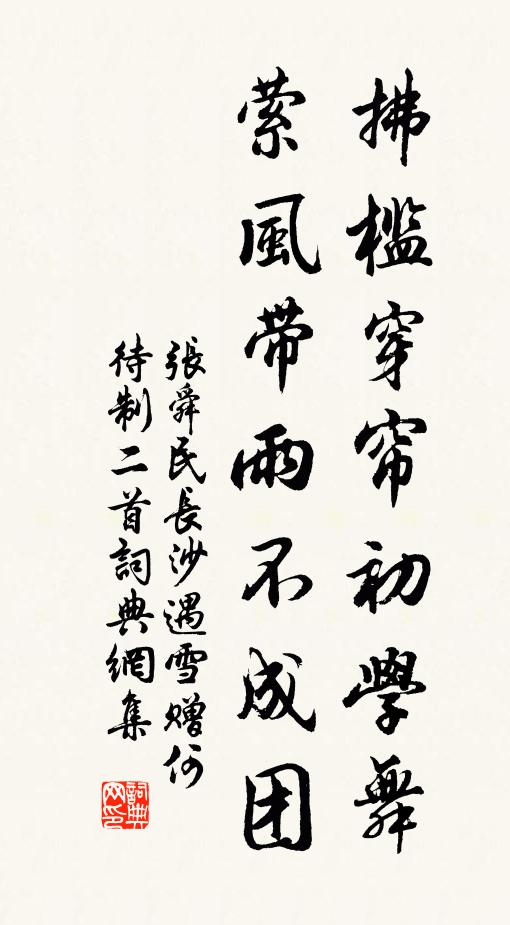 拂檻穿帘初學舞
萦風带雨不成团
張舜民長沙遇雪贈何
待制二首詞典網集
詞典网印